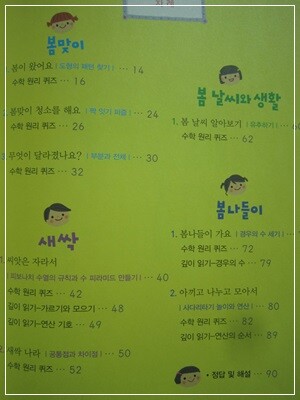 차례
봄맞이
1. 봄이 왔어요 | 도형의 패턴 찾기 | ··· 14
수학 원리 퀴즈 ··· 16
2. 봄맞이 청소를 해요 | 짝 짓기 퍼즐 | ··· 24
수학 원리 퀴즈 ··· 26
3. 무엇이 달라졌나요? | 부분과 전체 | ··· 30
수학 원리 퀴즈 ··· 32
새싹
1. 씨앗은 자라서
| 피보나치 수열의 규칙과 수 피라미드 만들기 | ··· 40
수학 원리 퀴즈 ··· 42
깊이 읽기-가르기와 모으기 ··· 48
깊이 읽기-연산 기호 ··· 49
2. 새싹 나라 | 공통점과 차이점 | ··· 50
수학 원리 퀴즈 ··· 52
봄 날씨와 생활
1. 봄 날씨 알아보기 | 유추하기 | ··· 60
수학 원리 퀴즈 ··· 62
봄나들이
1. 봄나들이 가요 | 경우의 수 세기 |
수학 원리 퀴즈 ··· 72
깊이 읽기-경우의 수 ··· 79
2. 아끼고 나누고 모아서
| 사다리타기 놀이와 연산 | ··· 80
수학 원리 퀴즈 ··· 82
깊이 읽기-연산의 순서 ··· 89
• 정답 및 해설 ··· 90